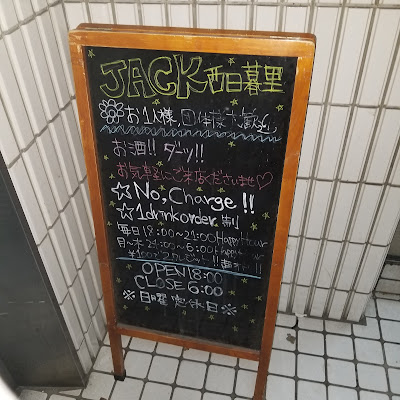 JACK 西日暮里
お1人様、団体様大歓迎
お酒!! ダーツ!!
お気軽にご来店くださいませ♡
☆No, Charge!!
☆1drink order 制
毎日18:00〜21:00 Happy Hour
月〜木 24:00〜6:00 Happy
¥100
OPEN 18:00
CLOSE 6:00
※日曜定休日※